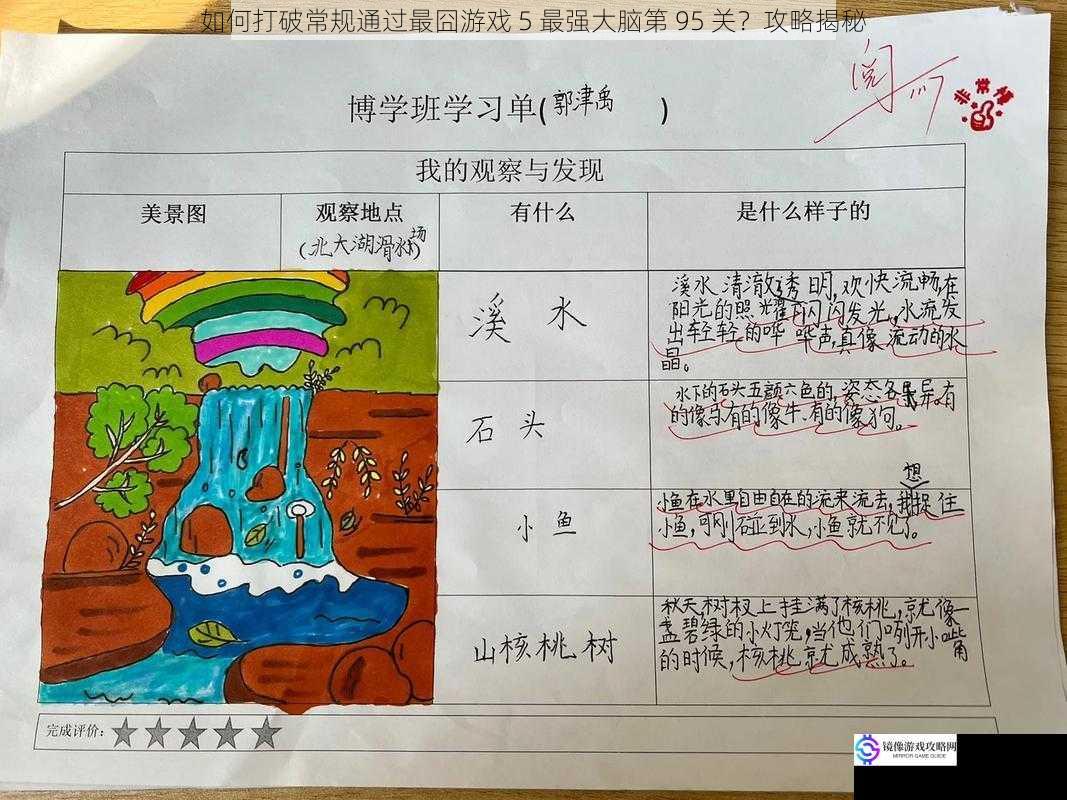 如何打破常规通过最囧游戏 5 最强大脑第 95 关？攻略揭秘
阅
非常棒
博学班学习单(郭津禹 )
我的观察与发现
美景图
观察地点
(北大湖滑冰场)
有什么
是什么样子的
溪 水
溪水清澈透明,欢快流畅,在
阳光的照耀下闪闪发光,水流发
出轻轻的哗哗声,真像流动的水
晶。
石 头
水下的石头五颜六色的,姿态各异,有
的像鸟有的像牛,有的像狗。
小 鱼
小鱼在水里自由自在的流来流去,我想捉住
小鱼,可刚碰到水,小鱼就不见了。
山核桃树
秋天树杈上挂满了核桃,就像一
盏碧绿的小灯笼,当他们咧开小嘴角
的时候,核桃就成熟了。
完成评价：
镜像游戏攻略网
MIRROR GAME GUIDE